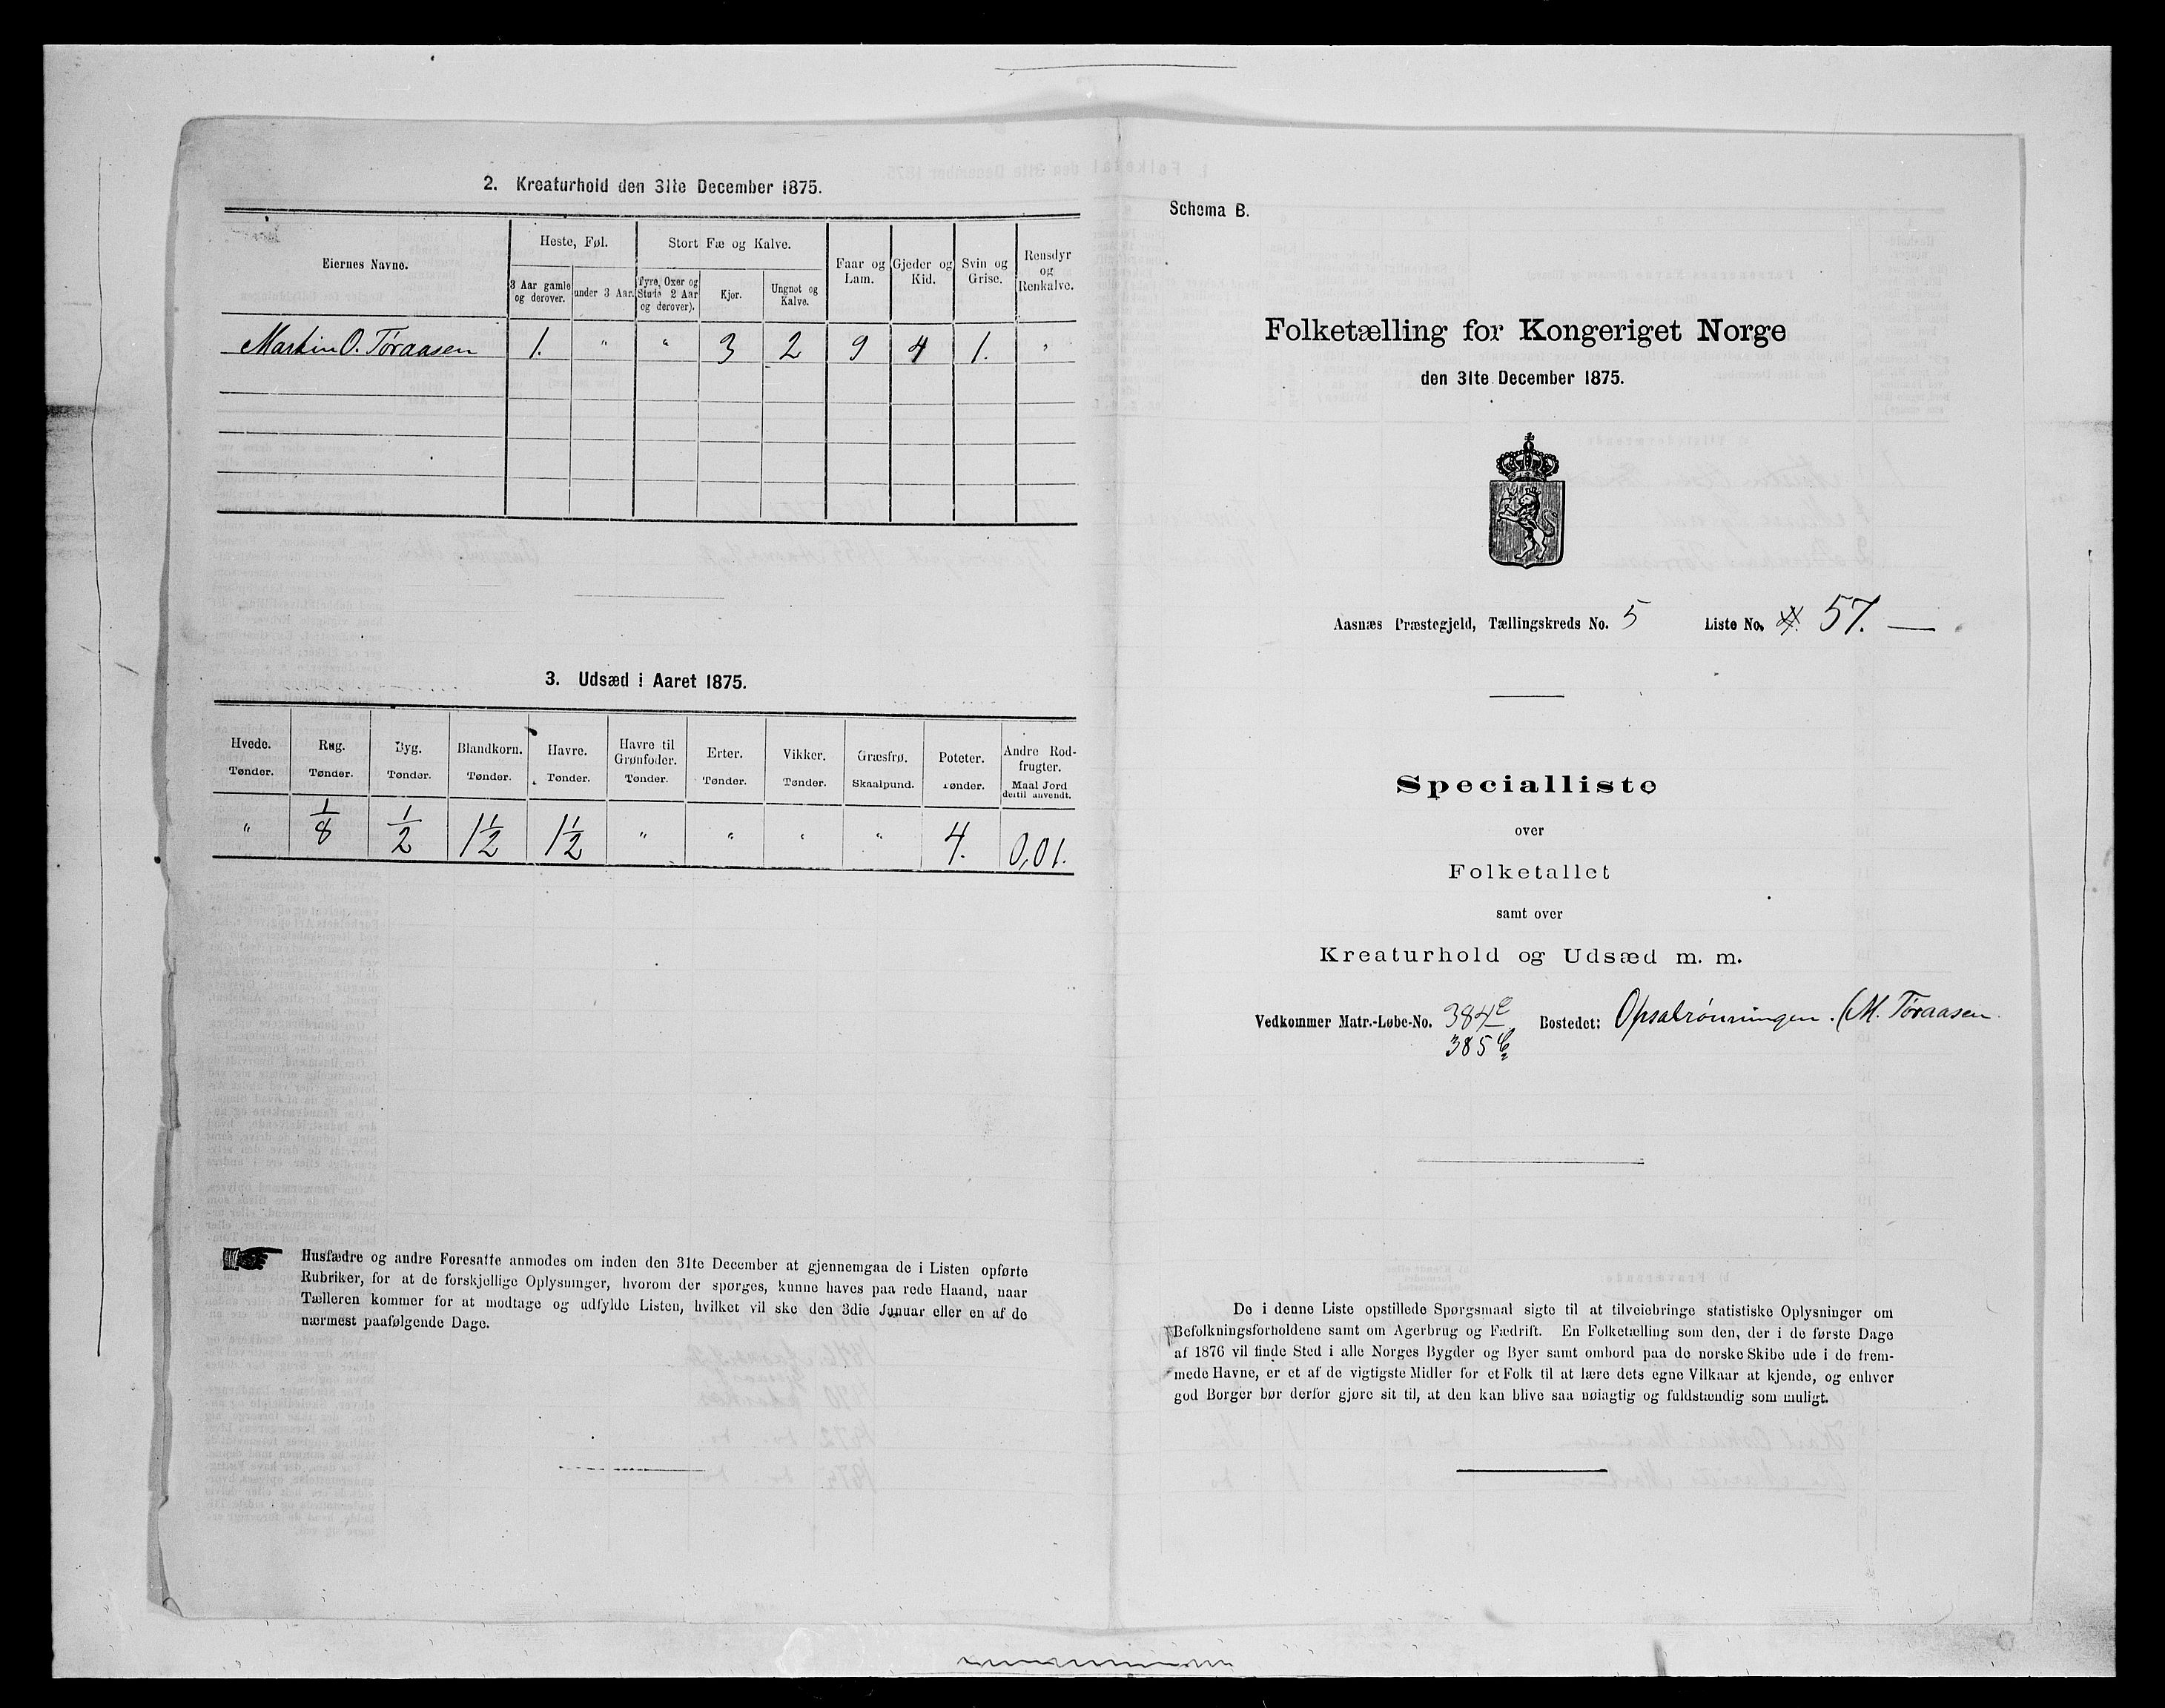 2. Kreaturhold den 31te December 1875.
Eiernes Navne.
Heste, Føl.
Stort Fæ og Kalve.
Faar og Lam.
Gjeder og Kid.
Svin og Grise.
Rensdyr og Renkalve.
3 Aar gamle og derover.
under 3 Aar.
Tyre, Oxer og Stude 2 Aar og derover).
Kjør.
Ungnot og Kalve.
Martin O. Tøraasen 1. " " 3 2 9 4 1. "
3. Udsæd i Aaret 1875.
Hvede. Rug. Byg. Blandkorn. Havre. Havre til Grønfoder. Erter. Vikker. Græsfrø. Poteter. Andre Rodfrugter.
Tønder. Tønder. Tønder. Tønder. Tønder. Tønder. Tønder. Tønder. Skaalpund. Tønder. Maal Jord dertil anvendt.
" 1/8 1/2 1 1/2 1 1/2 " " " " 4. 0,01.
Husfædre og andre Foresatte anmodes om inden den 31te December at gjennemgaa de i Listen opførte
Rubriker, for at de forskjellige Oplysninger, hvorom der spørges, kunne haves paa rede Haand, naar
Tælleren kommer for at modtage og udfylde Listen, hvilket vil ske den 3die Januar eller en af de
nærmest paafølgende Dage.
Schema B.
Folketælling for Kongeriget Norge
den 31te December 1875.
Aasnæs Præstegjeld, Tællingskreds No. 5 Liste No. 57. —
Specialliste
over
Folketallet
samt over
Kreaturhold og Udsæd m. m.
Vedkommer Matr.-Løbe-No. 384e Bostedet: Opsalrønningen. (M. Tøraasen.
385
De i denne Liste opstillede Spørgsmaal sigte til at tilveiebringe statistiske Oplysninger om
Befolkningsforholdene samt om Agerbrug og Fædrift. En Folketælling som den, der i de første Dage
af 1876 vil finde Sted i alle Norges Bygder og Byer samt ombord paa de norske Skibe ude i de frem-
mede Havne, er et af de vigtigste Midler for et Folk til at lære dets egne Vilkaar at kjende, og enhver
god Borger bør derfor gjøre sit til, at den kan blive saa nøiagtig og fuldstændig som muligt.